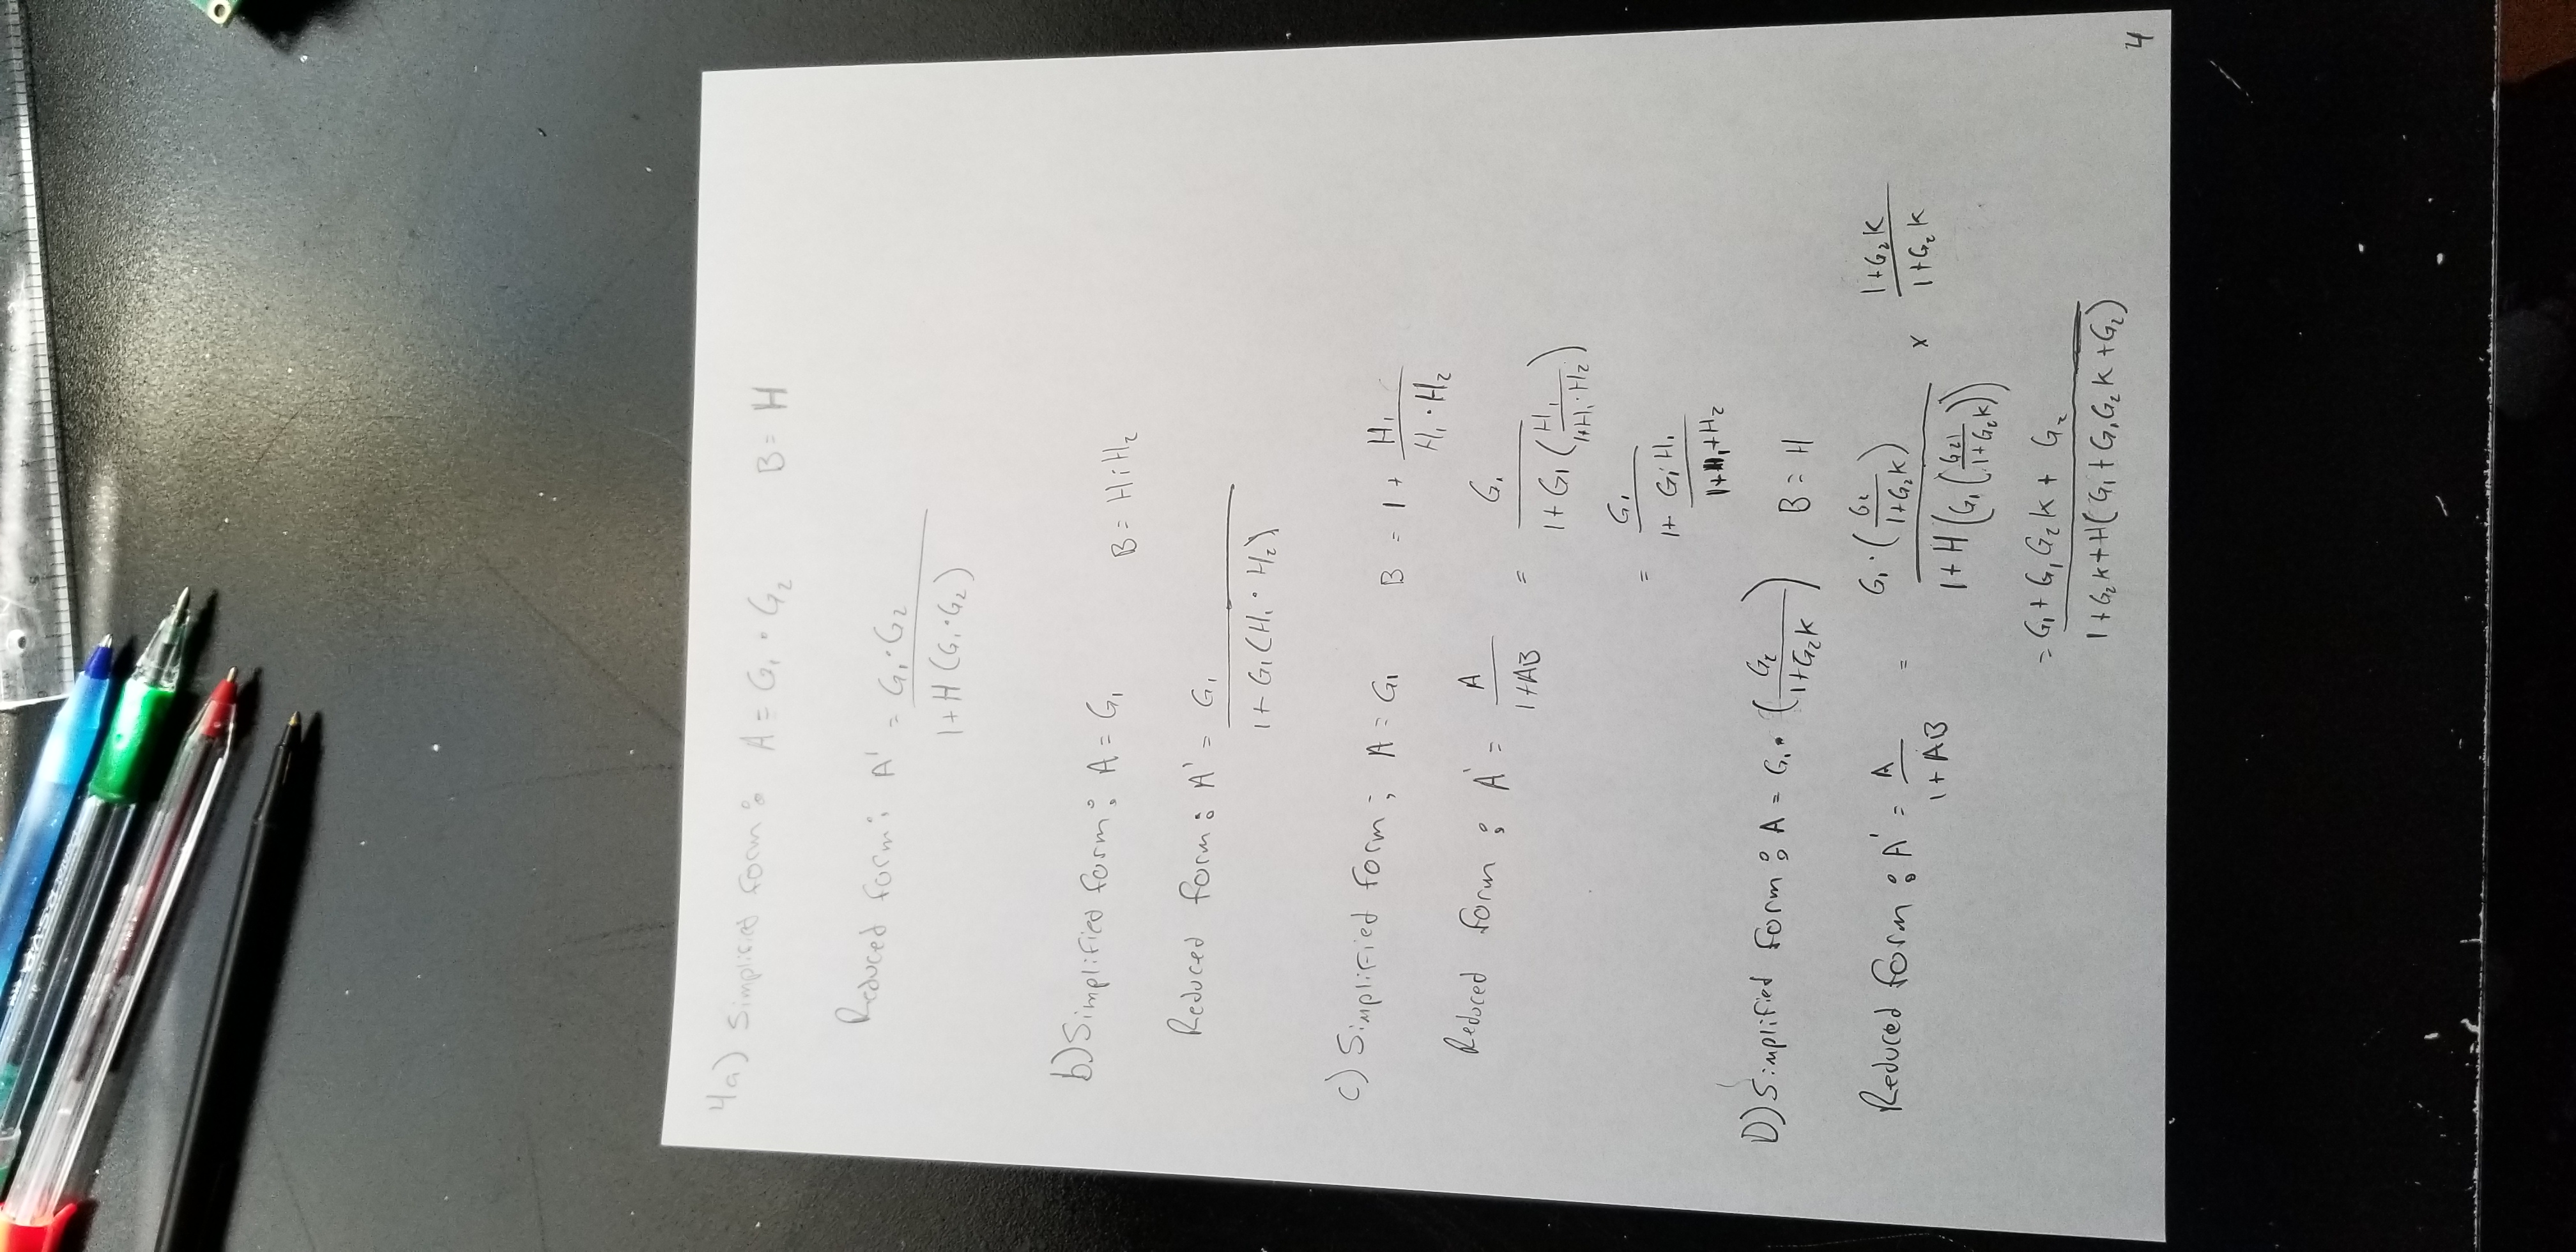 4a) Simplified form: A = G₁ · G₂ B = H
Reduced form: A' = G₁·G₂
1+H(G₁·G₂)
b) Simplified form: A = G₁ B = H₁H₂
Reduced form: A' = G₁
1+ G₁(H₁ · H₂)
c) Simplified form; A = G₁ B = 1 + H₁
H₁ · H₂
Reduced form: A' = A = G₁
1+AB 1+ G₁(H₁
1+H₁·H₂)
= G₁
1+ G₁H₁
1+H₁+H₂
D) Simplified form: A = G₁· (G₂
1+G₂K) B = H
Reduced form: A' = A = G₁·(G₂
1+G₂K) x 1+G₂K
1+AB 1+H(G₁(G₂₁
1+G₂K)) 1+G₂K
= G₁+G₁G₂K + G₂
1+G₂K+H(G₁+G₁G₂K+G₂)
4